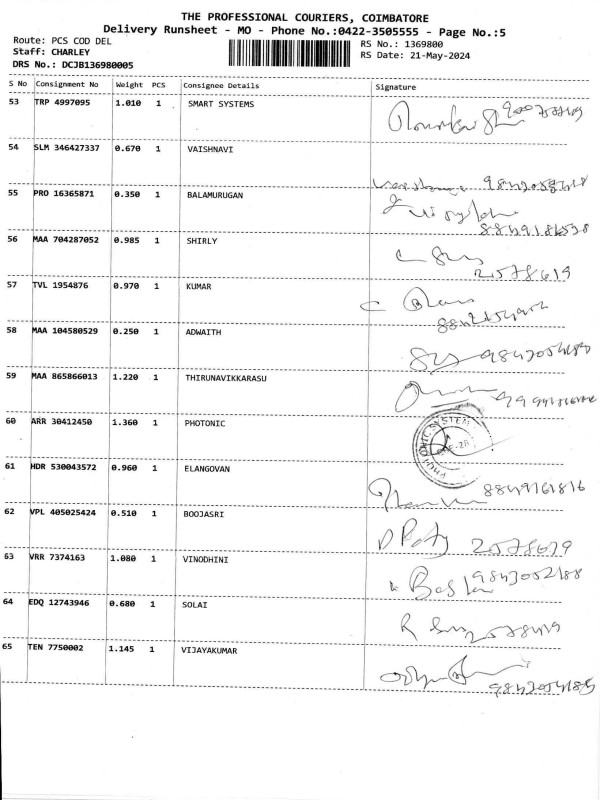 THE PROFESSIONAL COURIERS, COIMBATORE
Delivery Runsheet - MO - Phone No.:0422-3505555 - Page No.:5
Route: PCS COD DEL
Staff: CHARLEY
DRS No.: DCJB136980005
RS No.: 1369800
RS Date: 21-May-2024
S No Consignment No Weight PCS Consignee Details Signature
53 TRP 4997095 1.010 1 SMART SYSTEMS
54 SLM 346427337 0.670 1 VAISHNAVI
55 PRO 16365871 0.350 1 BALAMURUGAN
56 MAA 704287052 0.985 1 SHIRLY
2578619
57 TVL 1954876 0.970 1 KUMAR
58 MAA 104580529 0.250 1 ADWAITH
59 MAA 865866013 1.220 1 THIRUNAVIKKARASU
60 ARR 30412450 1.360 1 PHOTONIC
PHOTONIC SYSTEM
61 HDR 530043572 0.960 1 ELANGOVAN
62 VPL 405025424 0.510 1 BOOJASRI
63 VRR 7374163 1.080 1 VINODHINI
64 EDQ 12743946 0.680 1 SOLAI
65 TEN 7750002 1.145 1 VIJAYAKUMAR